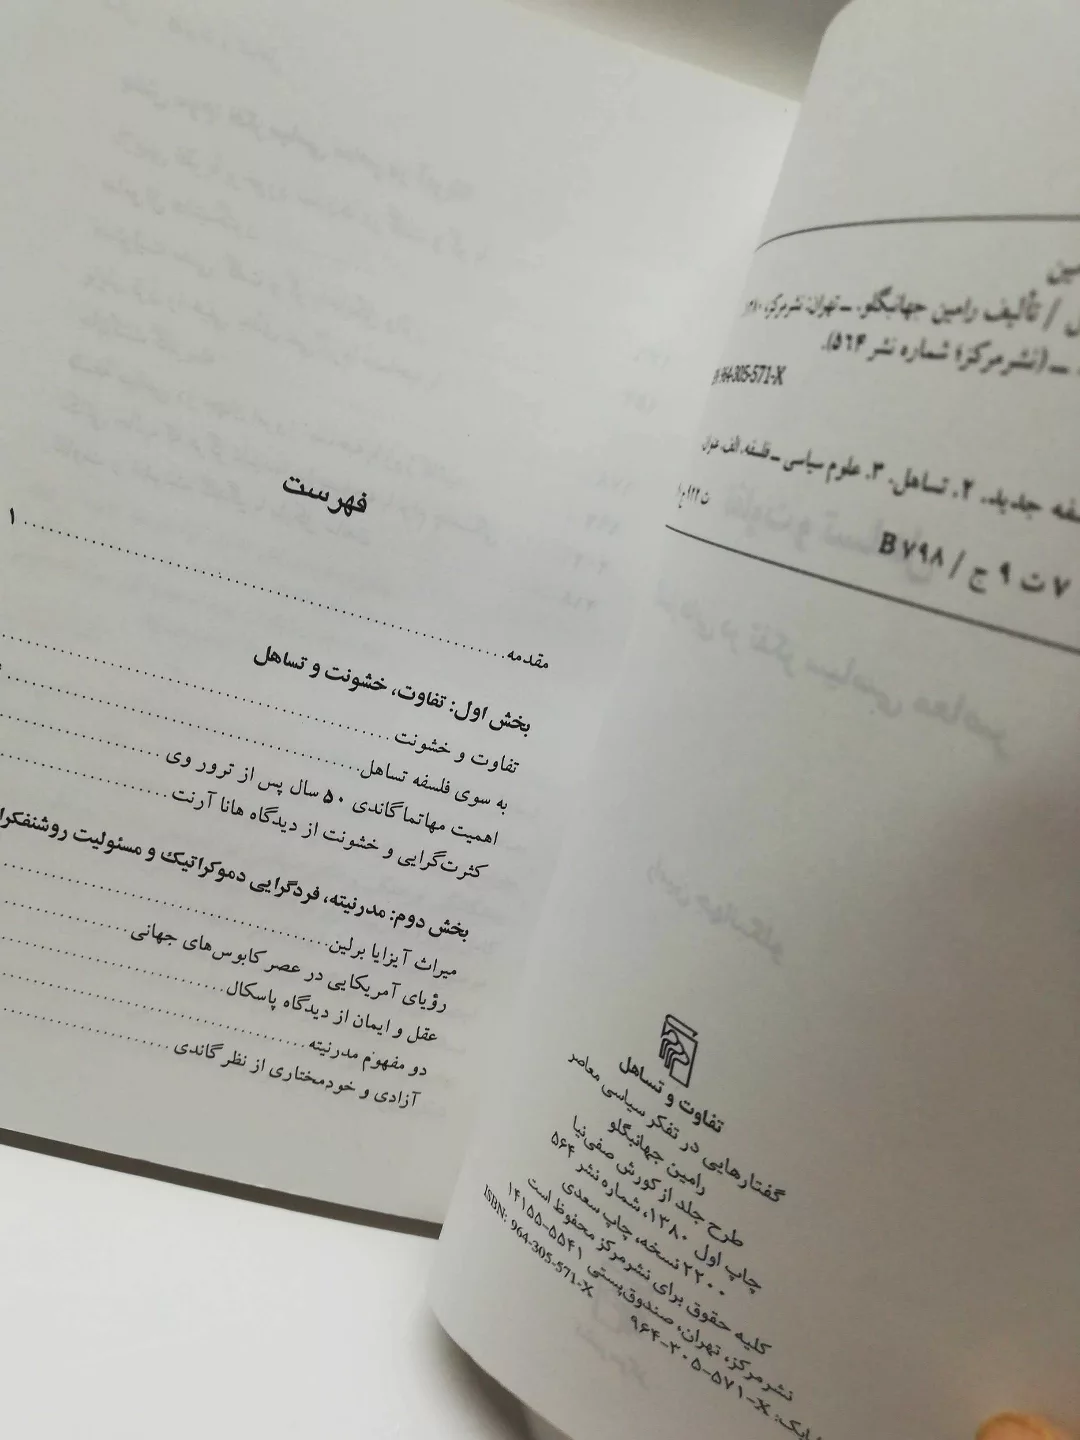 ل / تألیف رامین جهانبگلو. ــ تهران: نشرمرکز،
ــ (نشرمرکز؛ شماره نشر ۵۶۴).
964-305-571-X
فه جدید. ۲. تساهل. ۳. علوم سیاسی ــ فلسفه. الف. عنوان
۷ ت ۹ ج / B ۷۹۸
تفاوت و تساهل
گفتارهایی در تفکر سیاسی معاصر
رامین جهانبگلو
طرح جلد از کورش صفی‌نیا
چاپ اول ۱۳۸۰، شماره نشر ۵۶۴
۲۲۰۰ نسخه، چاپ سعدی
کلیه حقوق برای نشرمرکز محفوظ است
نشرمرکز، تهران، صندوق‌پستی ۵۵۴۱-۱۴۱۵۵
ISBN: 964-305-571-X
شابک: X-۵۷۱-۳۰۵-۹۶۴
فهرست
مقدمه ۱
بخش اول: تفاوت، خشونت و تساهل
تفاوت و خشونت
به سوی فلسفه تساهل
اهمیت مهاتما گاندی ۵۰ سال پس از ترور وی
کثرت‌گرایی و خشونت از دیدگاه هانا آرنت
بخش دوم: مدرنیته، فردگرایی دموکراتیک و مسئولیت روشنفکرا
میراث آیزایا برلین
رؤیای آمریکایی در عصر کابوس‌های جهانی
عقل و ایمان از دیدگاه پاسکال
دو مفهوم مدرنیته
آزادی و خودمختاری از نظر گاندی